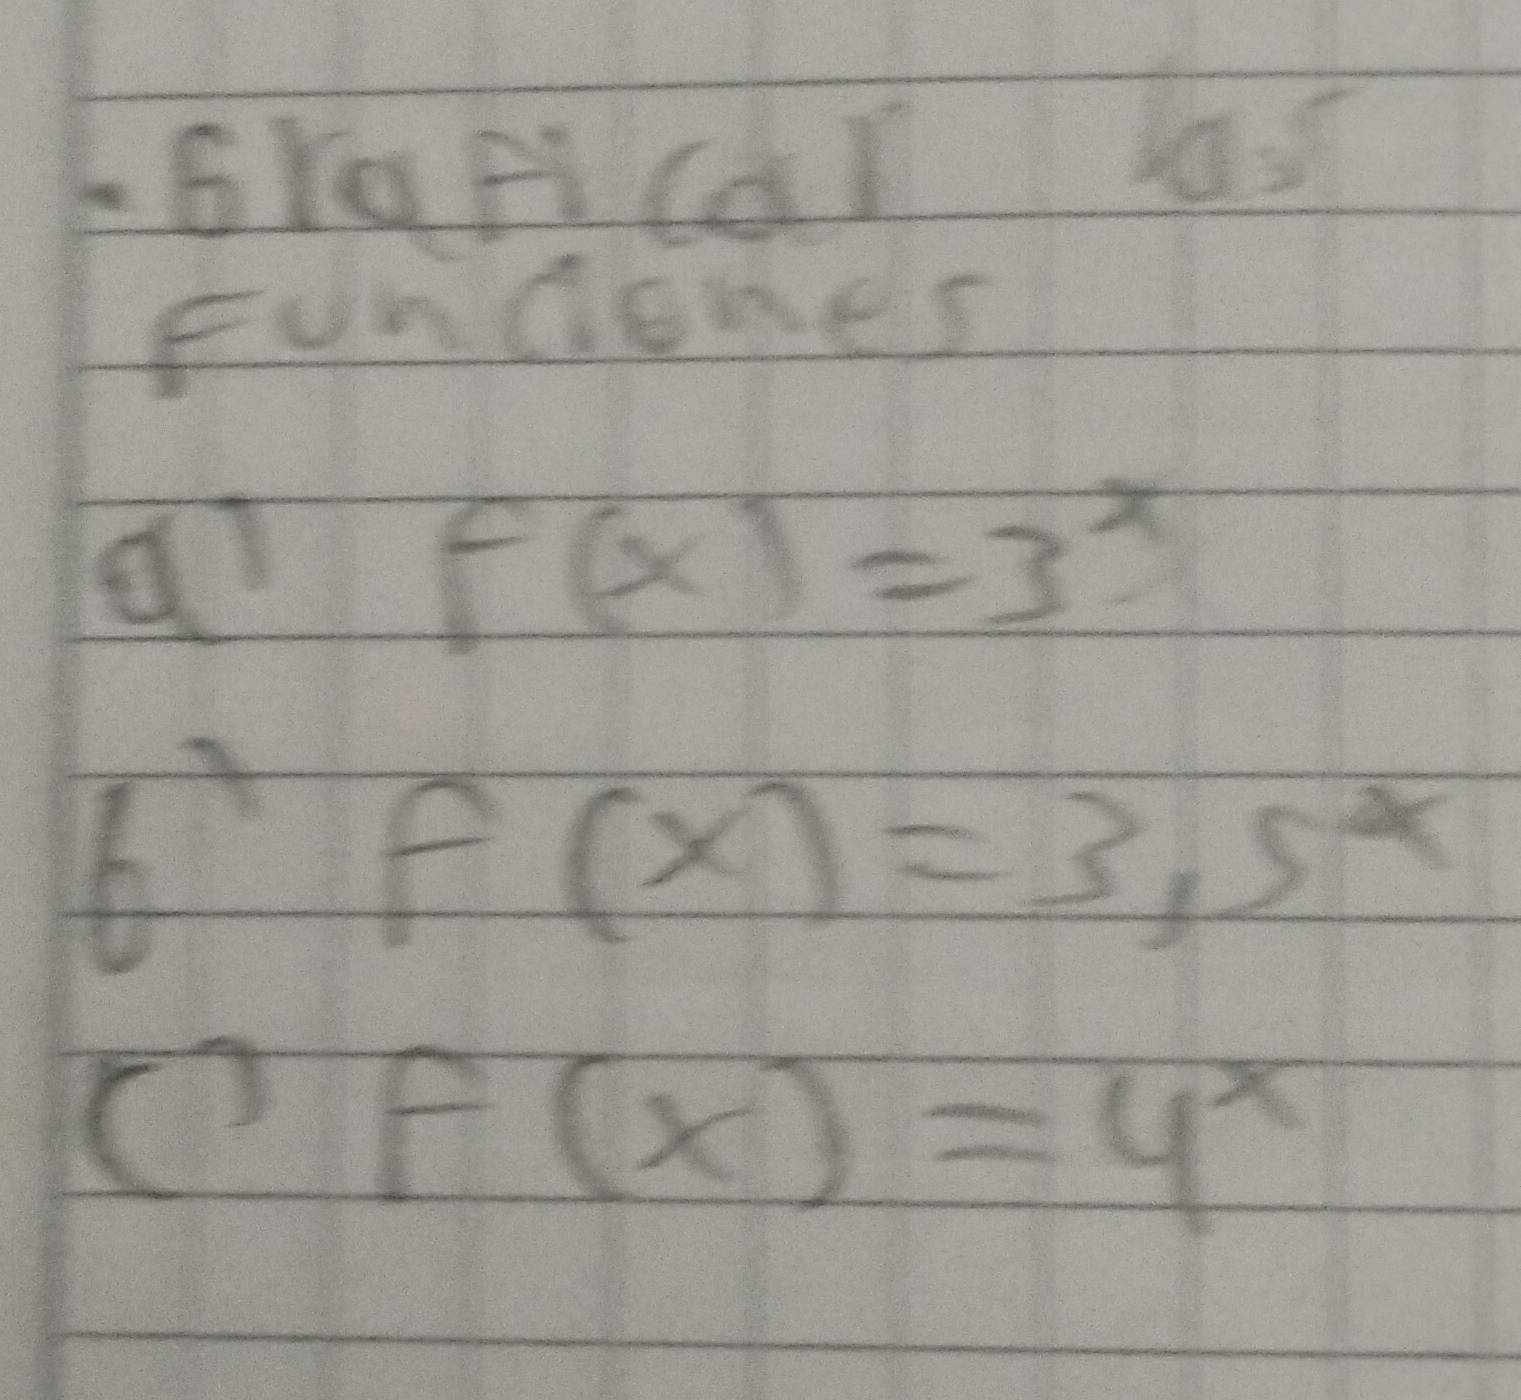 - Graficar las
Funciones
a) F(x) = 3^x
b) F(x) = 3,5^x
c) F(x) = 4^x